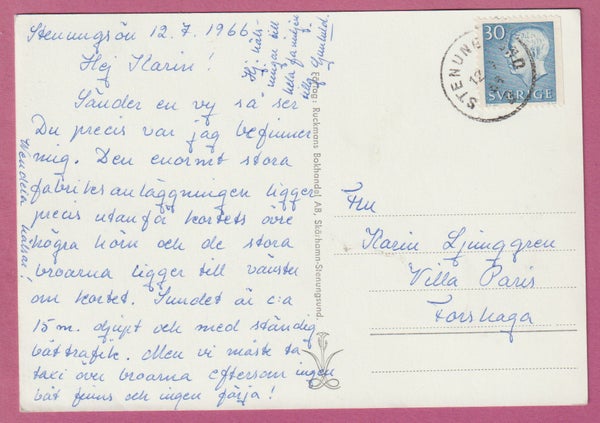 Stenungsön 12.7.1966
Hej Karin!
Sänder en vy så ser
Du precis var jag befinner
mig. Den enormt stora
fabriksanläggningen ligger
precis utanför kortets övre
högra hörn och de stora
broarna ligger till vänster
om kortet. Sundet är c:a
15 m. djupt och med ständig
båttrafik. Men vi måste ta
taxi över broarna eftersom ingen
båt finns och ingen färja!
hälsar!
Hej! häls-
ningar till
hela familjen
Gunhild.
Förlag: Ruckmans Bokhandel AB, Skärhamn-Stenungsund.
30
SVERIGE
STENUNGSUND
12
Fru
Karin Ljunggren
Villa Paris
Forshaga